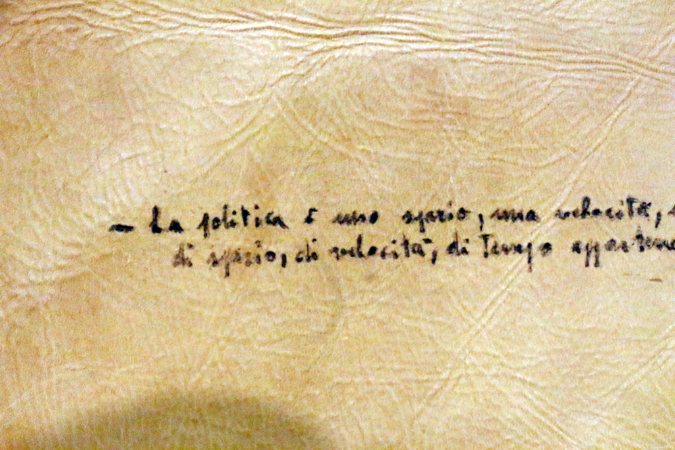 — La politica è uno spazio, una velocità,
di spazio, di velocità, di tempo